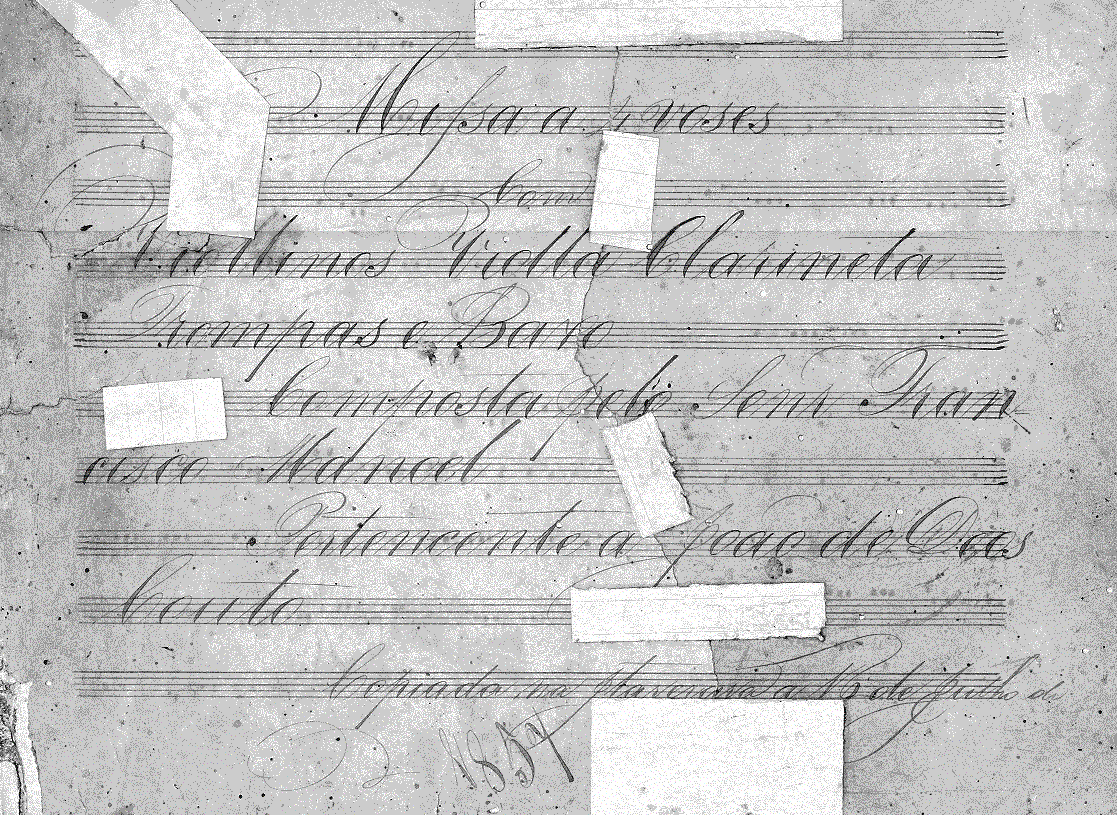 Missa a 4 voses
Com
Viollinos Viella Clarineta
Trompas e Baxo
Composta pelo Senr Fran
cisco Manoel
Pertencente a Joao de Deos
Couto
Copiada na Itaverava a 13 de Julho de
1857